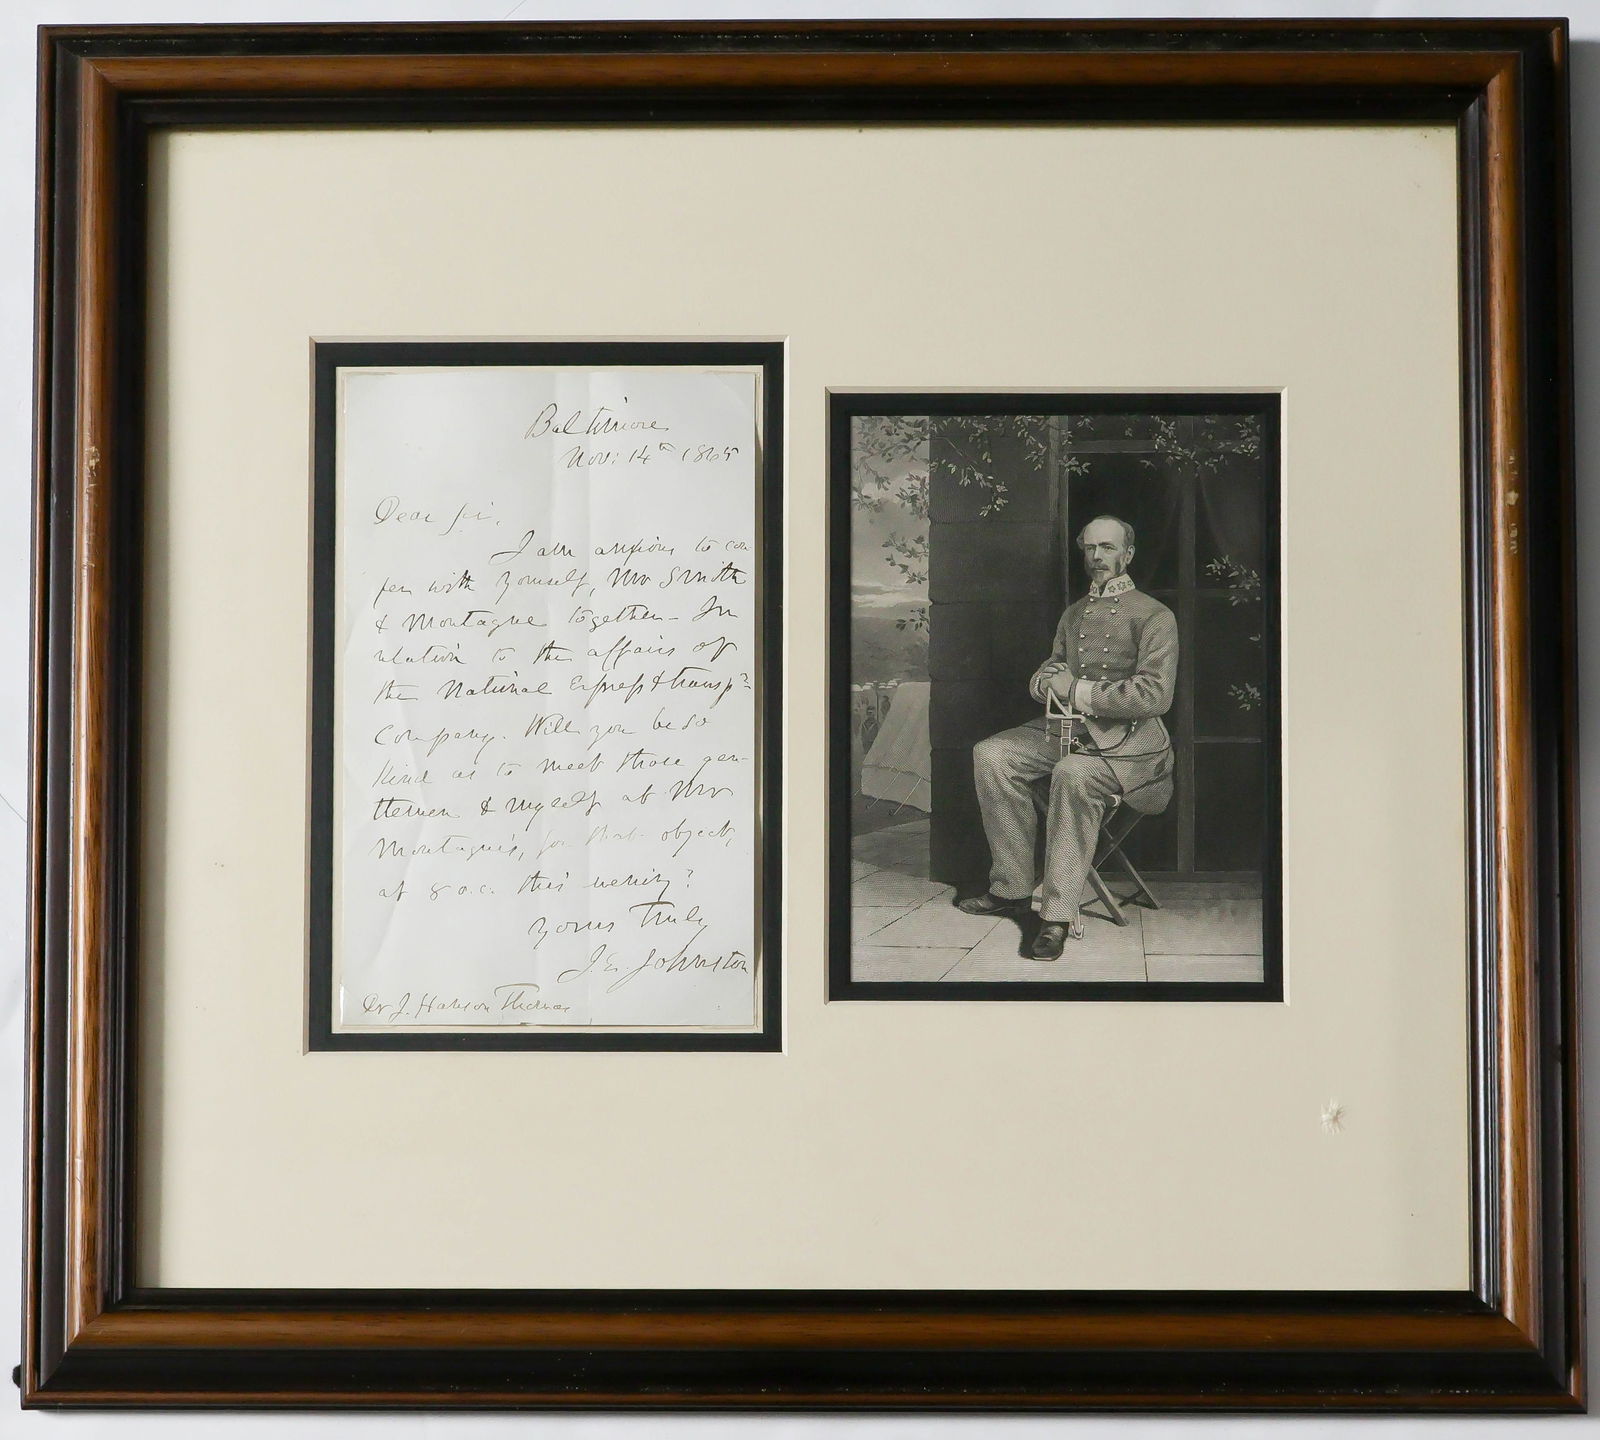 Baltimore
Nov: 14th 1865
Dear Sir,
I am anxious to con
fer with yourself, Mr Smith
& Montague together - In
relation to the affairs of
the National Express & transpn
Company. Will you be so
kind as to meet those gen-
tlemen & myself at Mr
Montague's, for that object,
at 8 o.c. this evening?
Yours Truly
J.E. Johnston
Dr J. Hanson Thomas